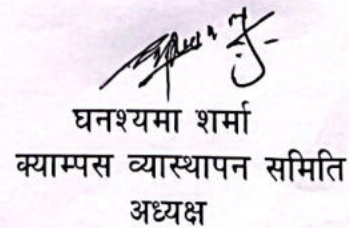 घनश्यमा शर्मा
क्याम्पस व्यास्थापन समिति
अध्यक्ष